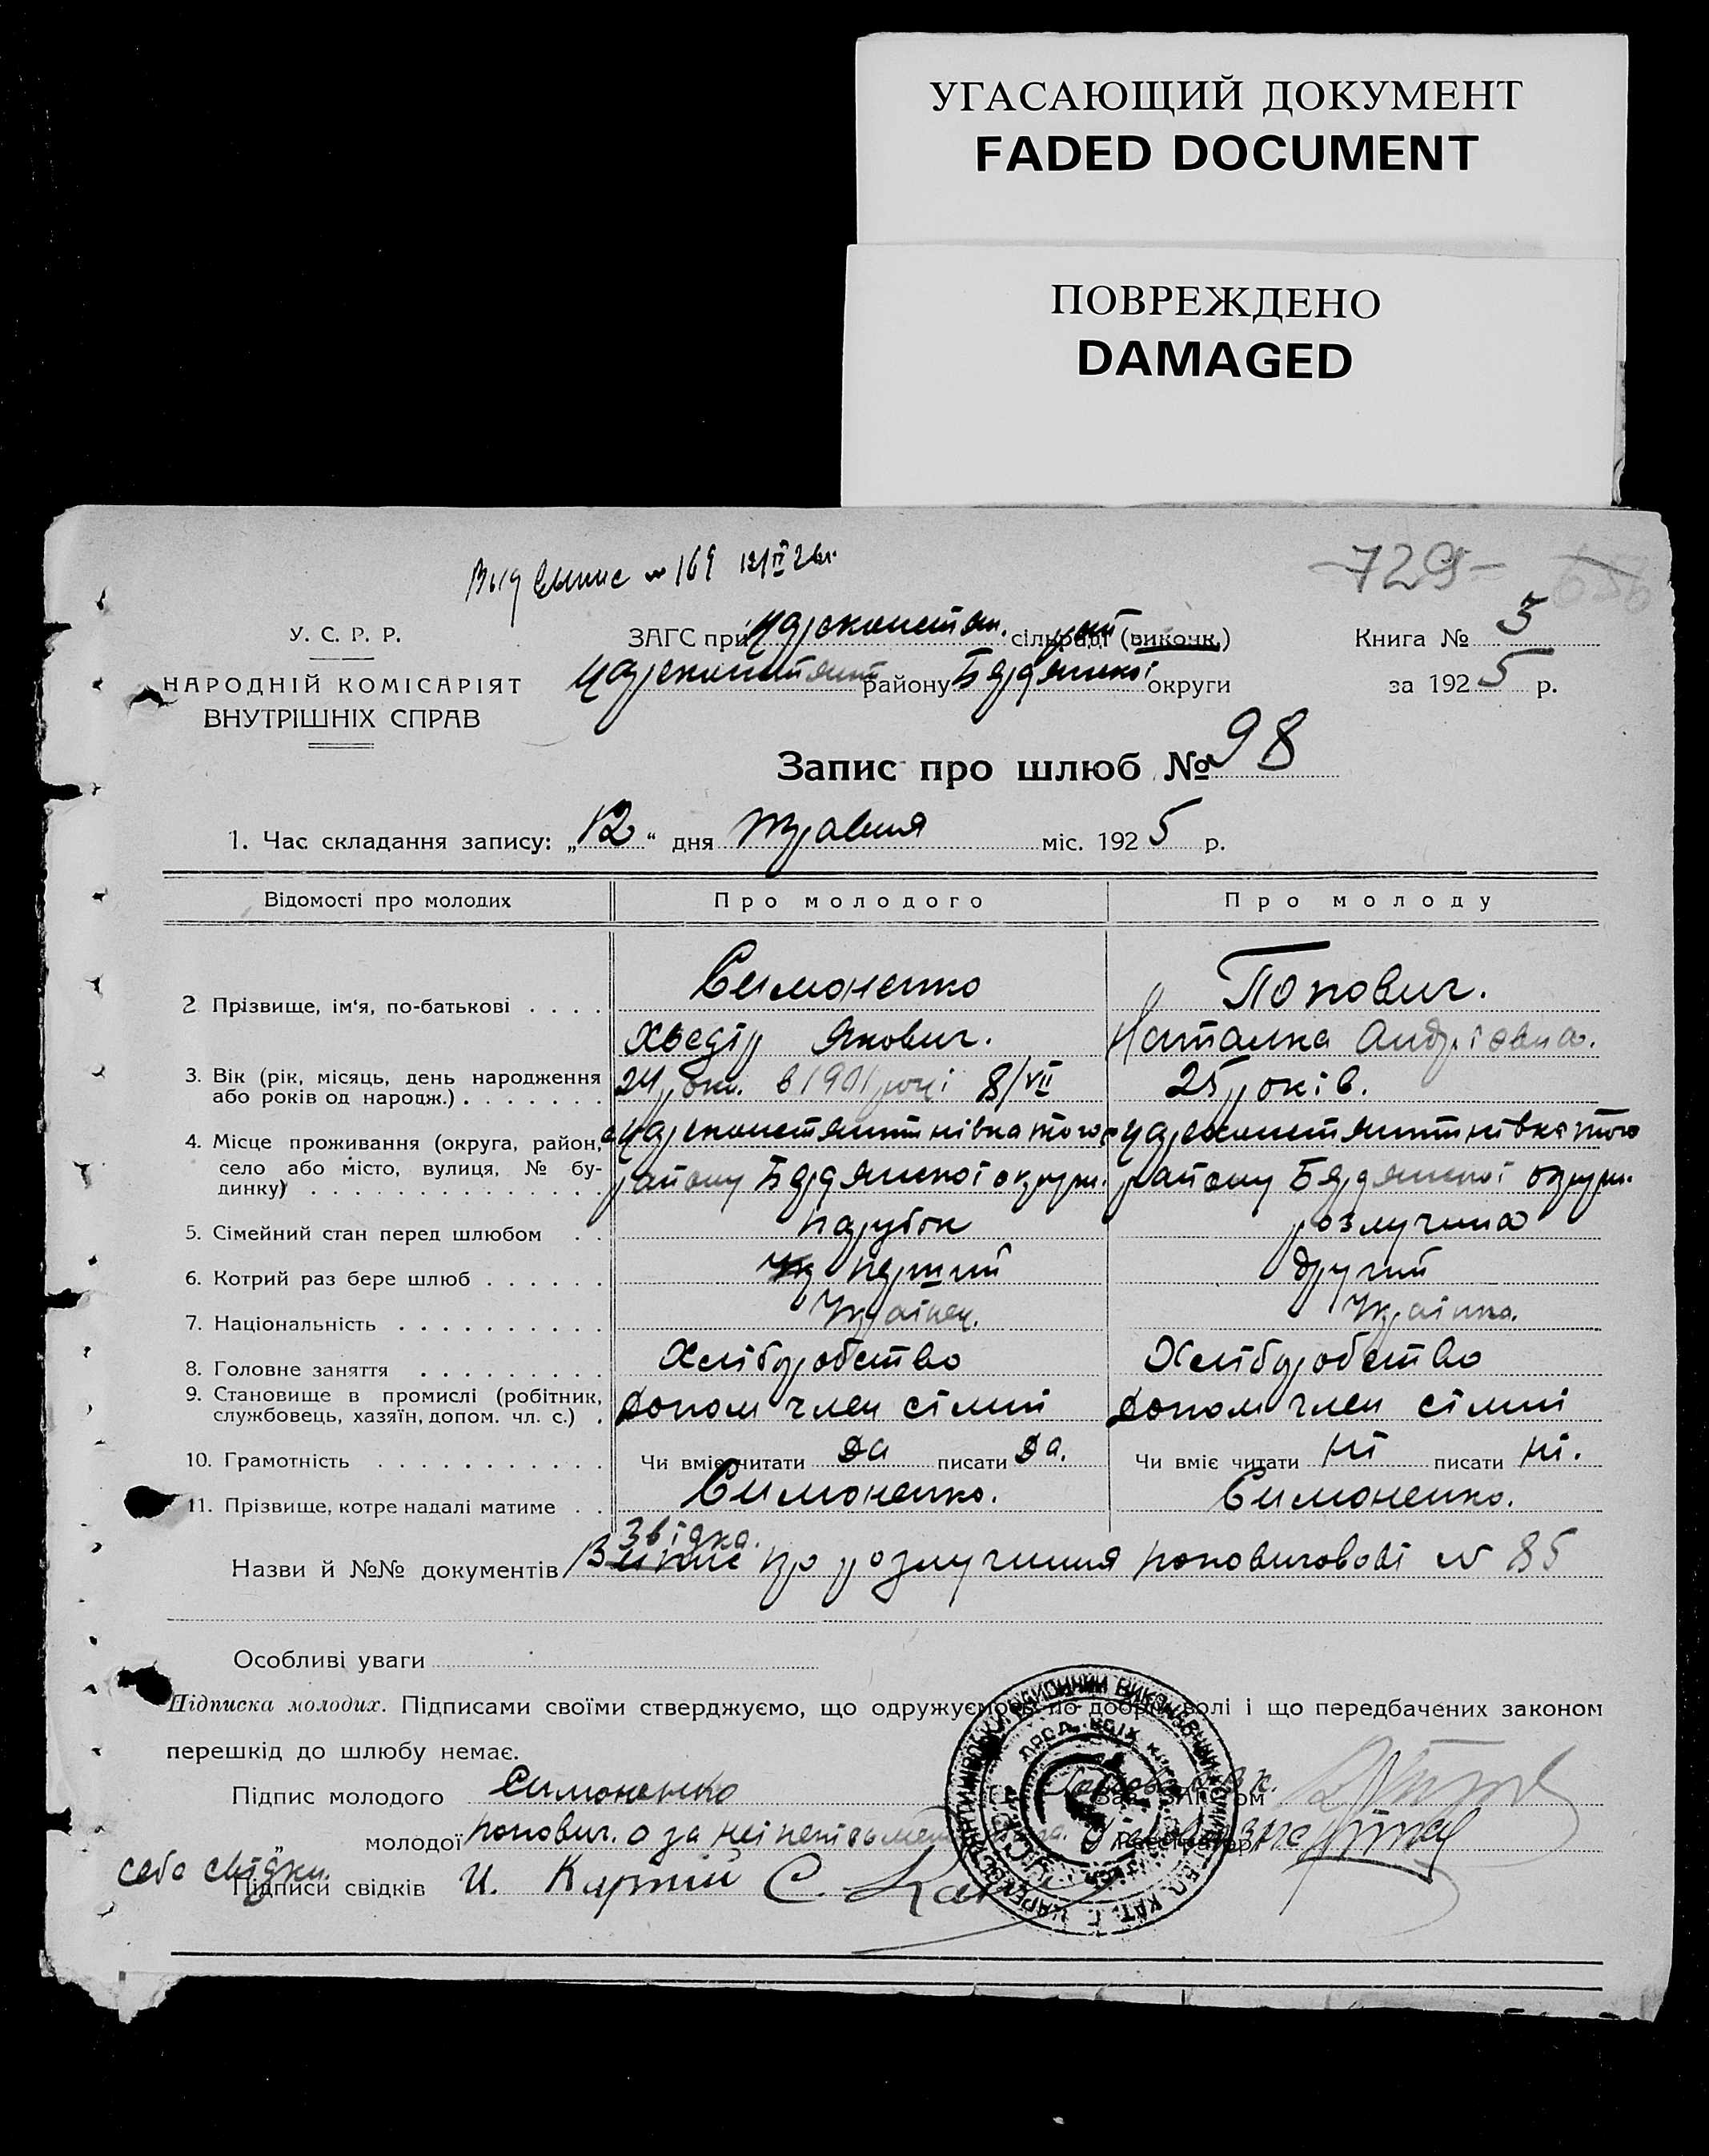 УГАСАЮЩИЙ ДОКУМЕНТ
FADED DOCUMENT
ПОВРЕЖДЕНО
DAMAGED
-729-
№ 169
У. С. Р. Р.
ЗАГС при Цареконстан. сільради (викочк.)
Книга № 3
НАРОДНІЙ КОМІСАРІЯТ
ВНУТРІШНІХ СПРАВ
району Бердянської округи
за 1925 р.
Запис про шлюб № 98
1. Час складання запису: „12“ дня травня міс. 1925 р.
Відомості про молодих
Про молодого
Про молоду
Симоненко
Попович.
2 Прізвище, ім'я, по-батькові
Хведір Якович.
Наталка Андріевна.
3. Вік (рік, місяць, день народження
або років од народж.)
24 рок. в 1901 році 8/VII
25 років.
4. Місце проживання (округа, район,
село або місто, вулиця, № бу-
динку)
с Цареконстянтинівка того
району Бердянської округи.
с Цареконстянтинівка того
району Бердянської округи.
5. Сімейний стан перед шлюбом
парубок
розлучина
6. Котрий раз бере шлюб
перший
другий
7. Національність
Українец.
Українка.
8. Головне заняття
Хліборобство
Хліборобство
9. Становище в промислі (робітник,
службовець, хазяїн, допом. чл. с.)
допом член сімьї
допом член сімьї
10. Грамотність
Чи вміє читати да писати да.
Чи вміє читати ні писати ні.
11. Прізвище, котре надалі матиме
Симоненко.
Симоненко.
Звідка.
Назви й №№ документів Випис про розлучиння поповичовові № 85
Особливі уваги
Підписка молодих. Підписами своїми стверджуємо, що одружуємось по добрій волі і що передбачених законом
перешкід до шлюбу немає.
Підпис молодого Симоненко
Зав. ЗАГСом
молодої попович. о за неї
Реєстратор
Підписи свідків И. С.